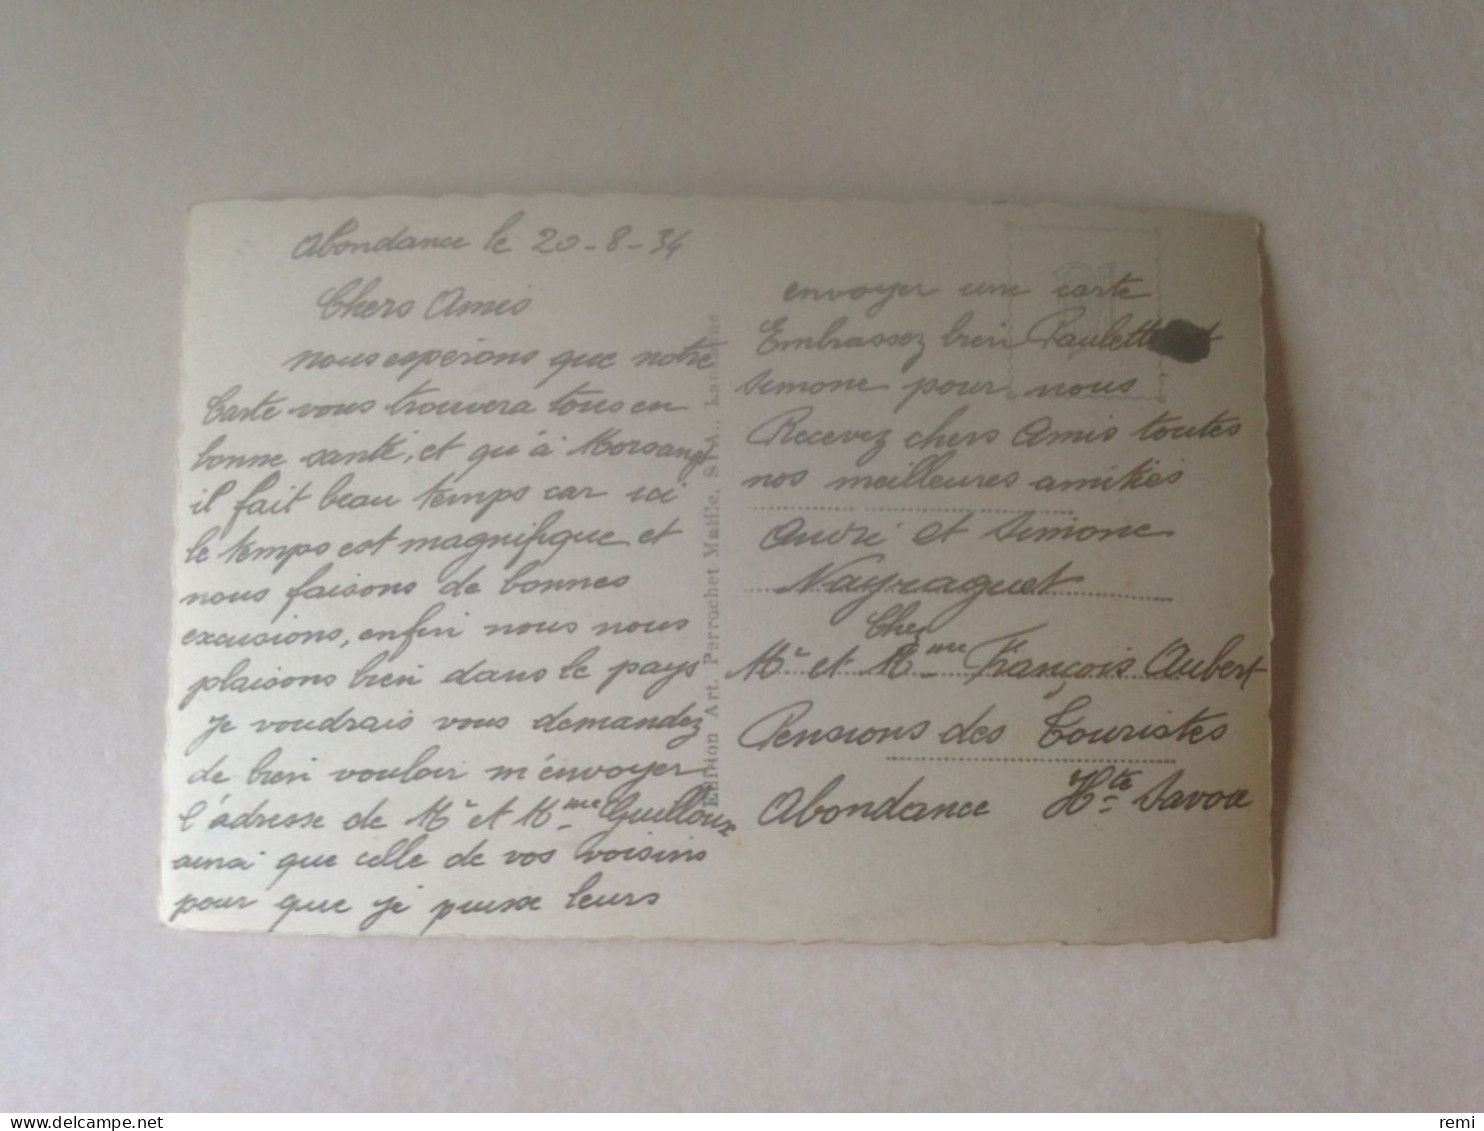 Abondance le 20-8-34
Chers Amis
nous espérons que notre
Carte vous trouvera tous en
bonne santé, et qu'à Morsang
il fait beau temps car ici
le temps est magnifique et
nous faisons de bonnes
excusions, enfin nous nous
plaisons bien dans le pays
je voudrais vous demandez
de bien vouloir m'envoyer
l'adresse de Mr et Mme Guilloux
ainsi que celle de vos voisins
pour que je puisse leurs
envoyer une carte
Embrassez bien Paulette et
Simone pour nous
Recevez chers Amis toutes
nos meilleures amitiés
André et Simone
Nayraguet
Chez
Mr et Mme François Aubert
Pensions des Touristes
Abondance Hte Savoie
Edition Art. Perrochet Matile, S. A., Lausanne
remi